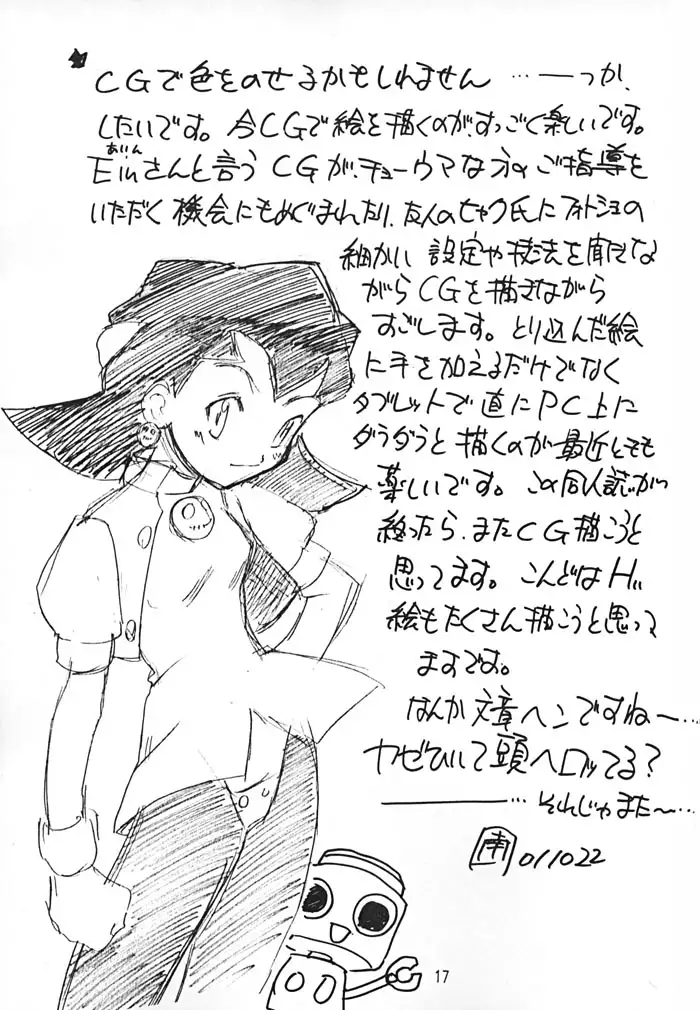 CGで色をのせるかもしれません …―っか、
したいです。今CGで絵を描くのが、すっごく楽しいです。
あいん
Einさんと言うCGが、チョーウマな方のご指導を
いただく機会にもめぐまれたり、友人のヒャク氏にフォトショの
細かい設定や技法を聞きな
がらCGを描きながら
すごします。とり込んだ絵
に手を加えるだけでなく
タブレットで直にPC上に
ダラダラと描くのが最近とても
楽しいです。この同人誌が
終ったら、またCG描こうと
思ってます。こんどはHい
絵もたくさん描こうと思って
ますです。
なんか文章ヘンですねー…
カゼひいて頭ヘロってる?
―――… それじゃまた〜…
南 011022
17